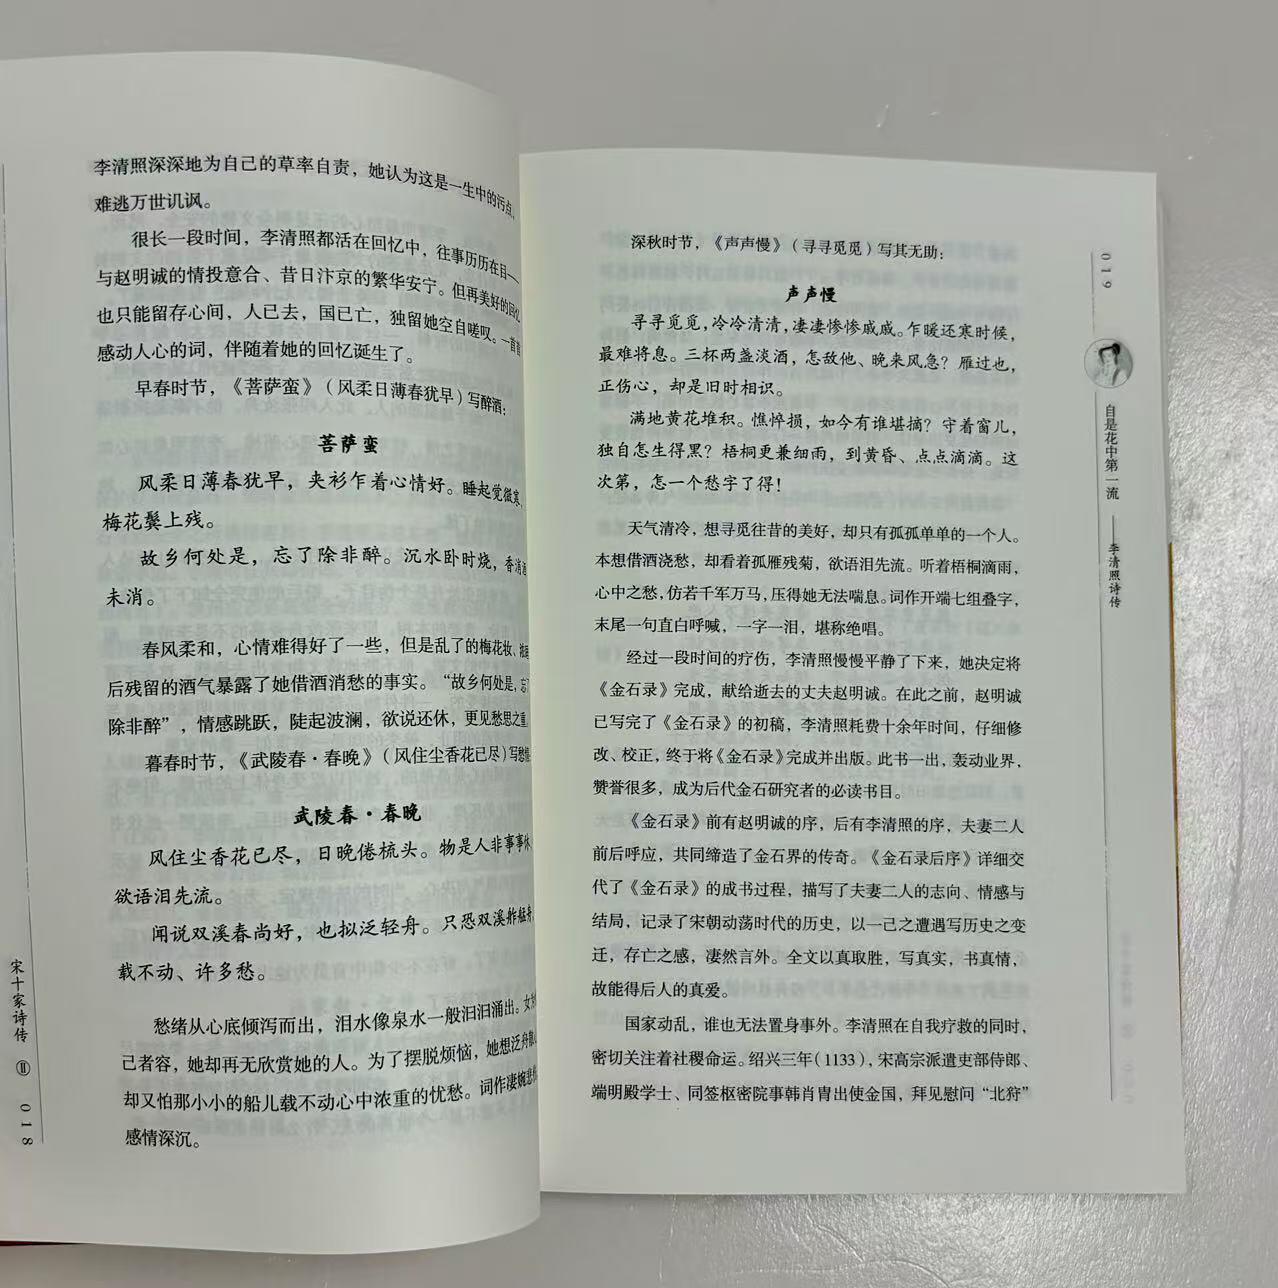 李清照深深地为自己的草率自责，她认为这是一生中的污点，
难逃万世讥讽。
很长一段时间，李清照都活在回忆中，往事历历在目——
与赵明诚的情投意合、昔日汴京的繁华安宁。但再美好的回忆
也只能留存心间，人已去，国已亡，独留她空自嗟叹。一首首
感动人心的词，伴随着她的回忆诞生了。
早春时节，《菩萨蛮》（风柔日薄春犹早）写醉酒：
菩萨蛮
风柔日薄春犹早，夹衫乍着心情好。睡起觉微寒，
梅花鬓上残。
故乡何处是，忘了除非醉。沉水卧时烧，香消酒
未消。
春风柔和，心情难得好了一些，但是乱了的梅花妆、
后残留的酒气暴露了她借酒消愁的事实。“故乡何处是，忘了
除非醉”，情感跳跃，陡起波澜，欲说还休，更见愁思之重。
暮春时节，《武陵春·春晚》（风住尘香花已尽）写愁情：
武陵春·春晚
风住尘香花已尽，日晚倦梳头。物是人非事事休，
欲语泪先流。
闻说双溪春尚好，也拟泛轻舟。只恐双溪舴艋舟，
载不动、许多愁。
愁绪从心底倾泻而出，泪水像泉水一般汩汩涌出。女为
己者容，她却再无欣赏她的人。为了摆脱烦恼，她想泛舟
却又怕那小小的船儿载不动心中浓重的忧愁。词作凄婉悲
感情深沉。
宋十家诗传 Ⅱ 018
深秋时节，《声声慢》（寻寻觅觅）写其无助：
声声慢
寻寻觅觅，冷冷清清，凄凄惨惨戚戚。乍暖还寒时候，
最难将息。三杯两盏淡酒，怎敌他、晚来风急？雁过也，
正伤心，却是旧时相识。
满地黄花堆积。憔悴损，如今有谁堪摘？守着窗儿，
独自怎生得黑？梧桐更兼细雨，到黄昏、点点滴滴。这
次第，怎一个愁字了得！
天气清冷，想寻觅往昔的美好，却只有孤孤单单的一个人。
本想借酒浇愁，却看着孤雁残菊，欲语泪先流。听着梧桐滴雨，
心中之愁，仿若千军万马，压得她无法喘息。词作开端七组叠字，
末尾一句直白呼喊，一字一泪，堪称绝唱。
经过一段时间的疗伤，李清照慢慢平静了下来，她决定将
《金石录》完成，献给逝去的丈夫赵明诚。在此之前，赵明诚
已写完了《金石录》的初稿，李清照耗费十余年时间，仔细修
改、校正，终于将《金石录》完成并出版。此书一出，轰动业界，
赞誉很多，成为后代金石研究者的必读书目。
《金石录》前有赵明诚的序，后有李清照的序，夫妻二人
前后呼应，共同缔造了金石界的传奇。《金石录后序》详细交
代了《金石录》的成书过程，描写了夫妻二人的志向、情感与
结局，记录了宋朝动荡时代的历史，以一己之遭遇写历史之变
迁，存亡之感，凄然言外。全文以真取胜，写真实，书真情，
故能得后人的真爱。
国家动乱，谁也无法置身事外。李清照在自我疗救的同时，
密切关注着社稷命运。绍兴三年（1133），宋高宗派遣吏部侍郎、
端明殿学士、同签枢密院事韩肖胄出使金国，拜见慰问“北狩”
019
自是花中第一流——李清照诗传